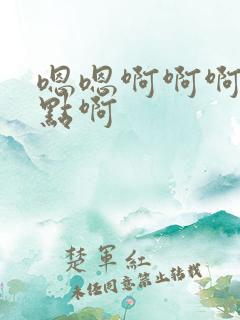 嗯嗯啊啊啊
點啊
楚軍紅
未经同意禁止转载